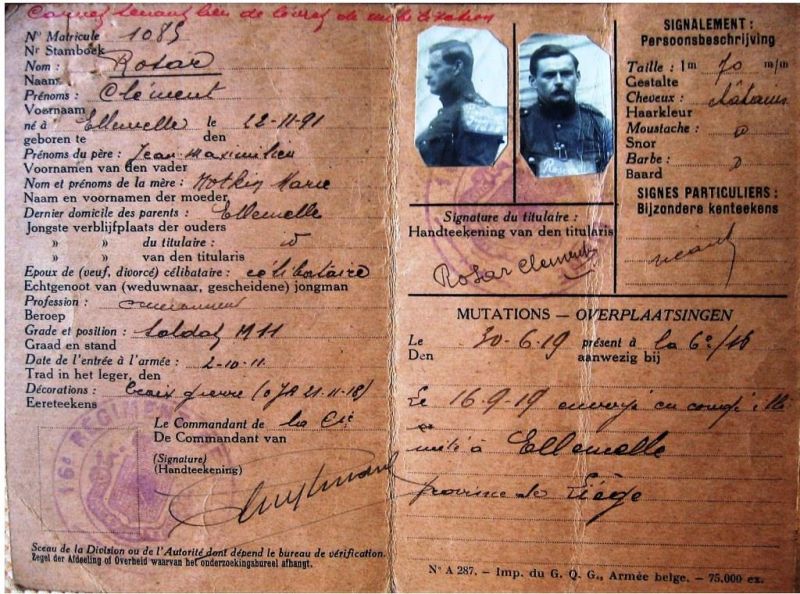 Carnet tenant lieu de livret de mobilisation
No Matricule 1085
Nr Stamboek
Nom : Rosar
Naam
Prénoms : Clément
Voornaam
né à Ellemelle le 22-11-91
geboren te den
Prénoms du père : Jean Maximilien
Voornamen van den vader
Nom et prénoms de la mère : Marie
Naam en voornamen der moeder
Dernier domicile des parents : Ellemelle
Jongste verblijfplaats der ouders
» » du titulaire : id
» » van den titularis
Epoux de (veuf, divorcé) célibataire : célibataire
Echtgenoot van (weduwnaar, gescheidene) jongman
Profession :
Beroep
Grade et position : Soldat M 11
Graad en stand
Date de l'entrée à l'armée : 2-10-11
Trad in het leger, den
Décorations : Croix guerre (OJA 21-11-18)
Eereteekens
Le Commandant de la Cie
De Commandant van
(Signature)
(Handteekening)
16e REGIMENT
Sceau de la Division ou de l'Autorité dont dépend le bureau de vérification.
Zegel der Afdeeling of Overheid waarvan het onderzoekingsbureel afhangt.
Signature du titulaire :
Handteekening van den titularis
Rosar Clément
SIGNALEMENT :
Persoonsbeschrijving
Taille : 1m 70 m/m
Gestalte
Cheveux : châtains
Haarkleur
Moustache :
Snor
Barbe :
Baard
SIGNES PARTICULIERS :
Bijzondere kenteekens
néant
MUTATIONS — OVERPLAATSINGEN
Le 30-6-19 présent à la 6e/16
Den aanwezig bij
Le 16-9-19 envoyé en congé illi
mité à Ellemelle
province de Liège
No A 287. – Imp. du G. Q. G., Armée belge. – 75.000 ex.